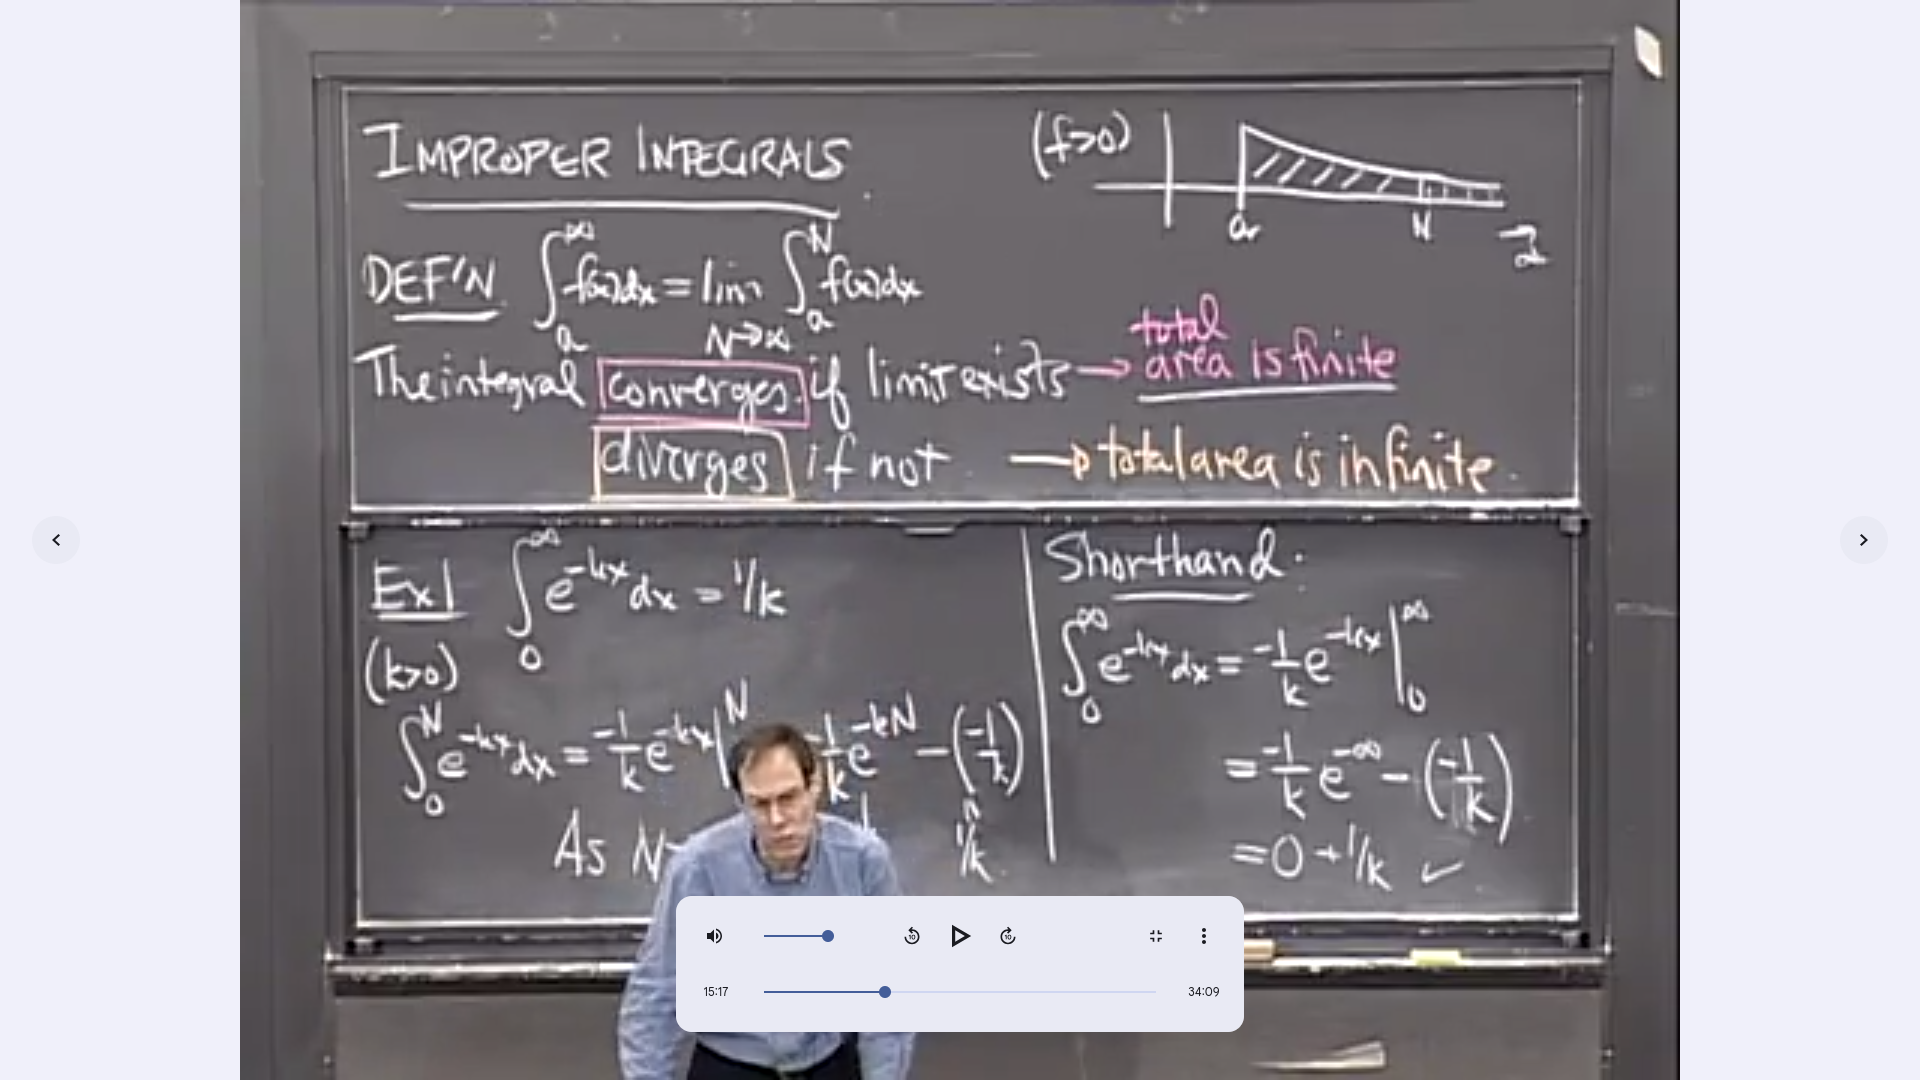 IMPROPER INTEGRALS
(f>0)
a N →∞
DEF'N ∫_a^∞ f(x)dx = lim_{N→∞} ∫_a^N f(x)dx
The integral converges if limit exists → total area is finite
diverges if not → total area is infinite
Ex 1 ∫_0^∞ e^{-kx} dx = 1/k
(k>0)
∫_0^N e^{-kx} dx = -1/k e^{-kx} |^N -1/k e^{-kN} - (-1/k)
As N→
1/k
Shorthand:
∫_0^∞ e^{-kx} dx = -1/k e^{-kx} |_0^∞
= -1/k e^{-∞} - (-1/k)
= 0 + 1/k ✓
10 10
15:17 34:09